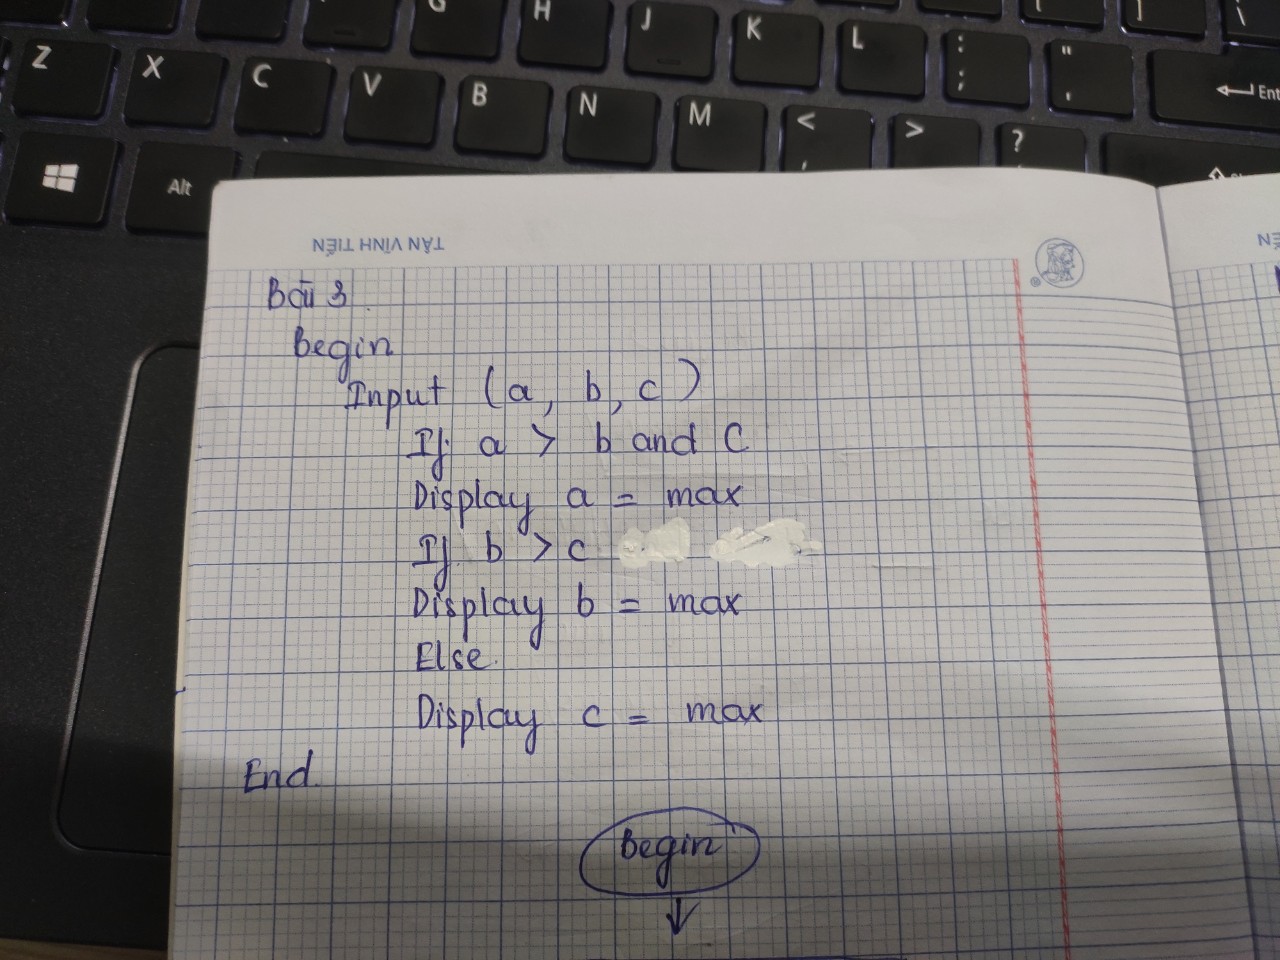 G H J K L : ; " ' [ ] \
Z X C V B N M < , > ? Ent
Alt
TÂN VĨNH TIẾN
Bài 3.
Begin
Input (a, b, c)
If a > b and C
Display a = max
If b > c
Display b = max
Else.
Display c = max
End.
Begin